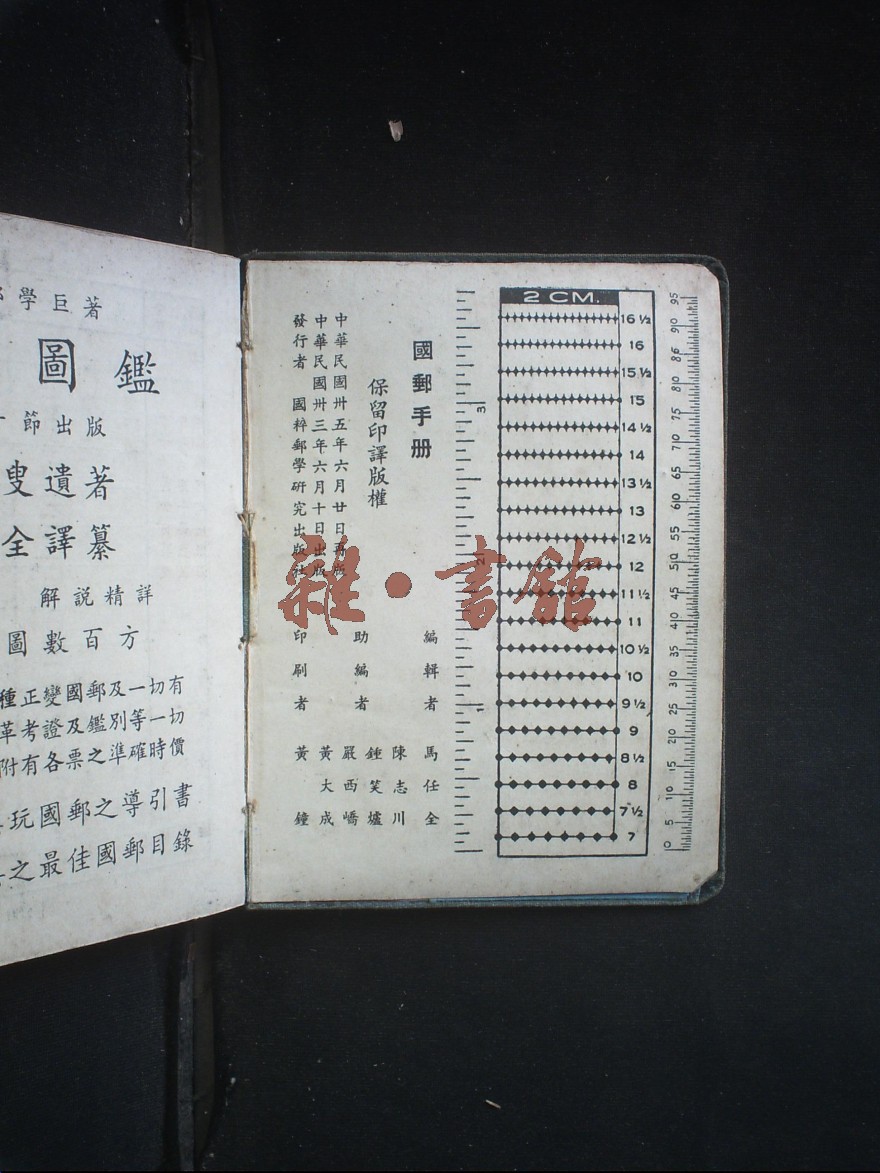 國郵手册
保留印譯版權
中華民國卅五年六月廿日再版
中華民國卅三年六月十日出版
發行者 國粹郵學研究出版社
編輯者 馬任全
助編者 陳志川
鍾笑爐
嚴西嶠
黃大成
印刷者 黃鐘
2 CM.
16 ½
16
15 ½
15
14 ½
14
13 ½
13
12 ½
12
11 ½
11
10 ½
10
9 ½
9
8 ½
8
7 ½
7
3
2
1
95
90
86
80
75
70
60
55
50
45
40
35
30
25
20
15
10
5
0
學巨著
圖鑑
節出版
叟遺著
全譯纂
解說精詳
圖數百方
種正變國郵及一切有
革考證及鑑別等一切
附有各票之準確時價
玩國郵之導引書
之最佳國郵目錄
雜·書館